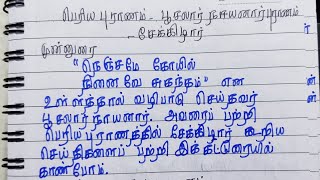 பெரிய புராணம் - பூசலார் நாயனார் புராணம்
- சேக்கிழார்
முன்னுரை
"நெஞ்சமே கோயில்
நினைவே சுகந்தம்" என
உள்ளத்தால் வழிபாடு செய்தவர்
பூசலார் நாயனார். அவரைப் பற்றி
பெரியபுராணத்தில் சேக்கிழார் கூறிய
செய்திகளைப் பற்றி இக்கட்டுரையில்
காண்போம்.